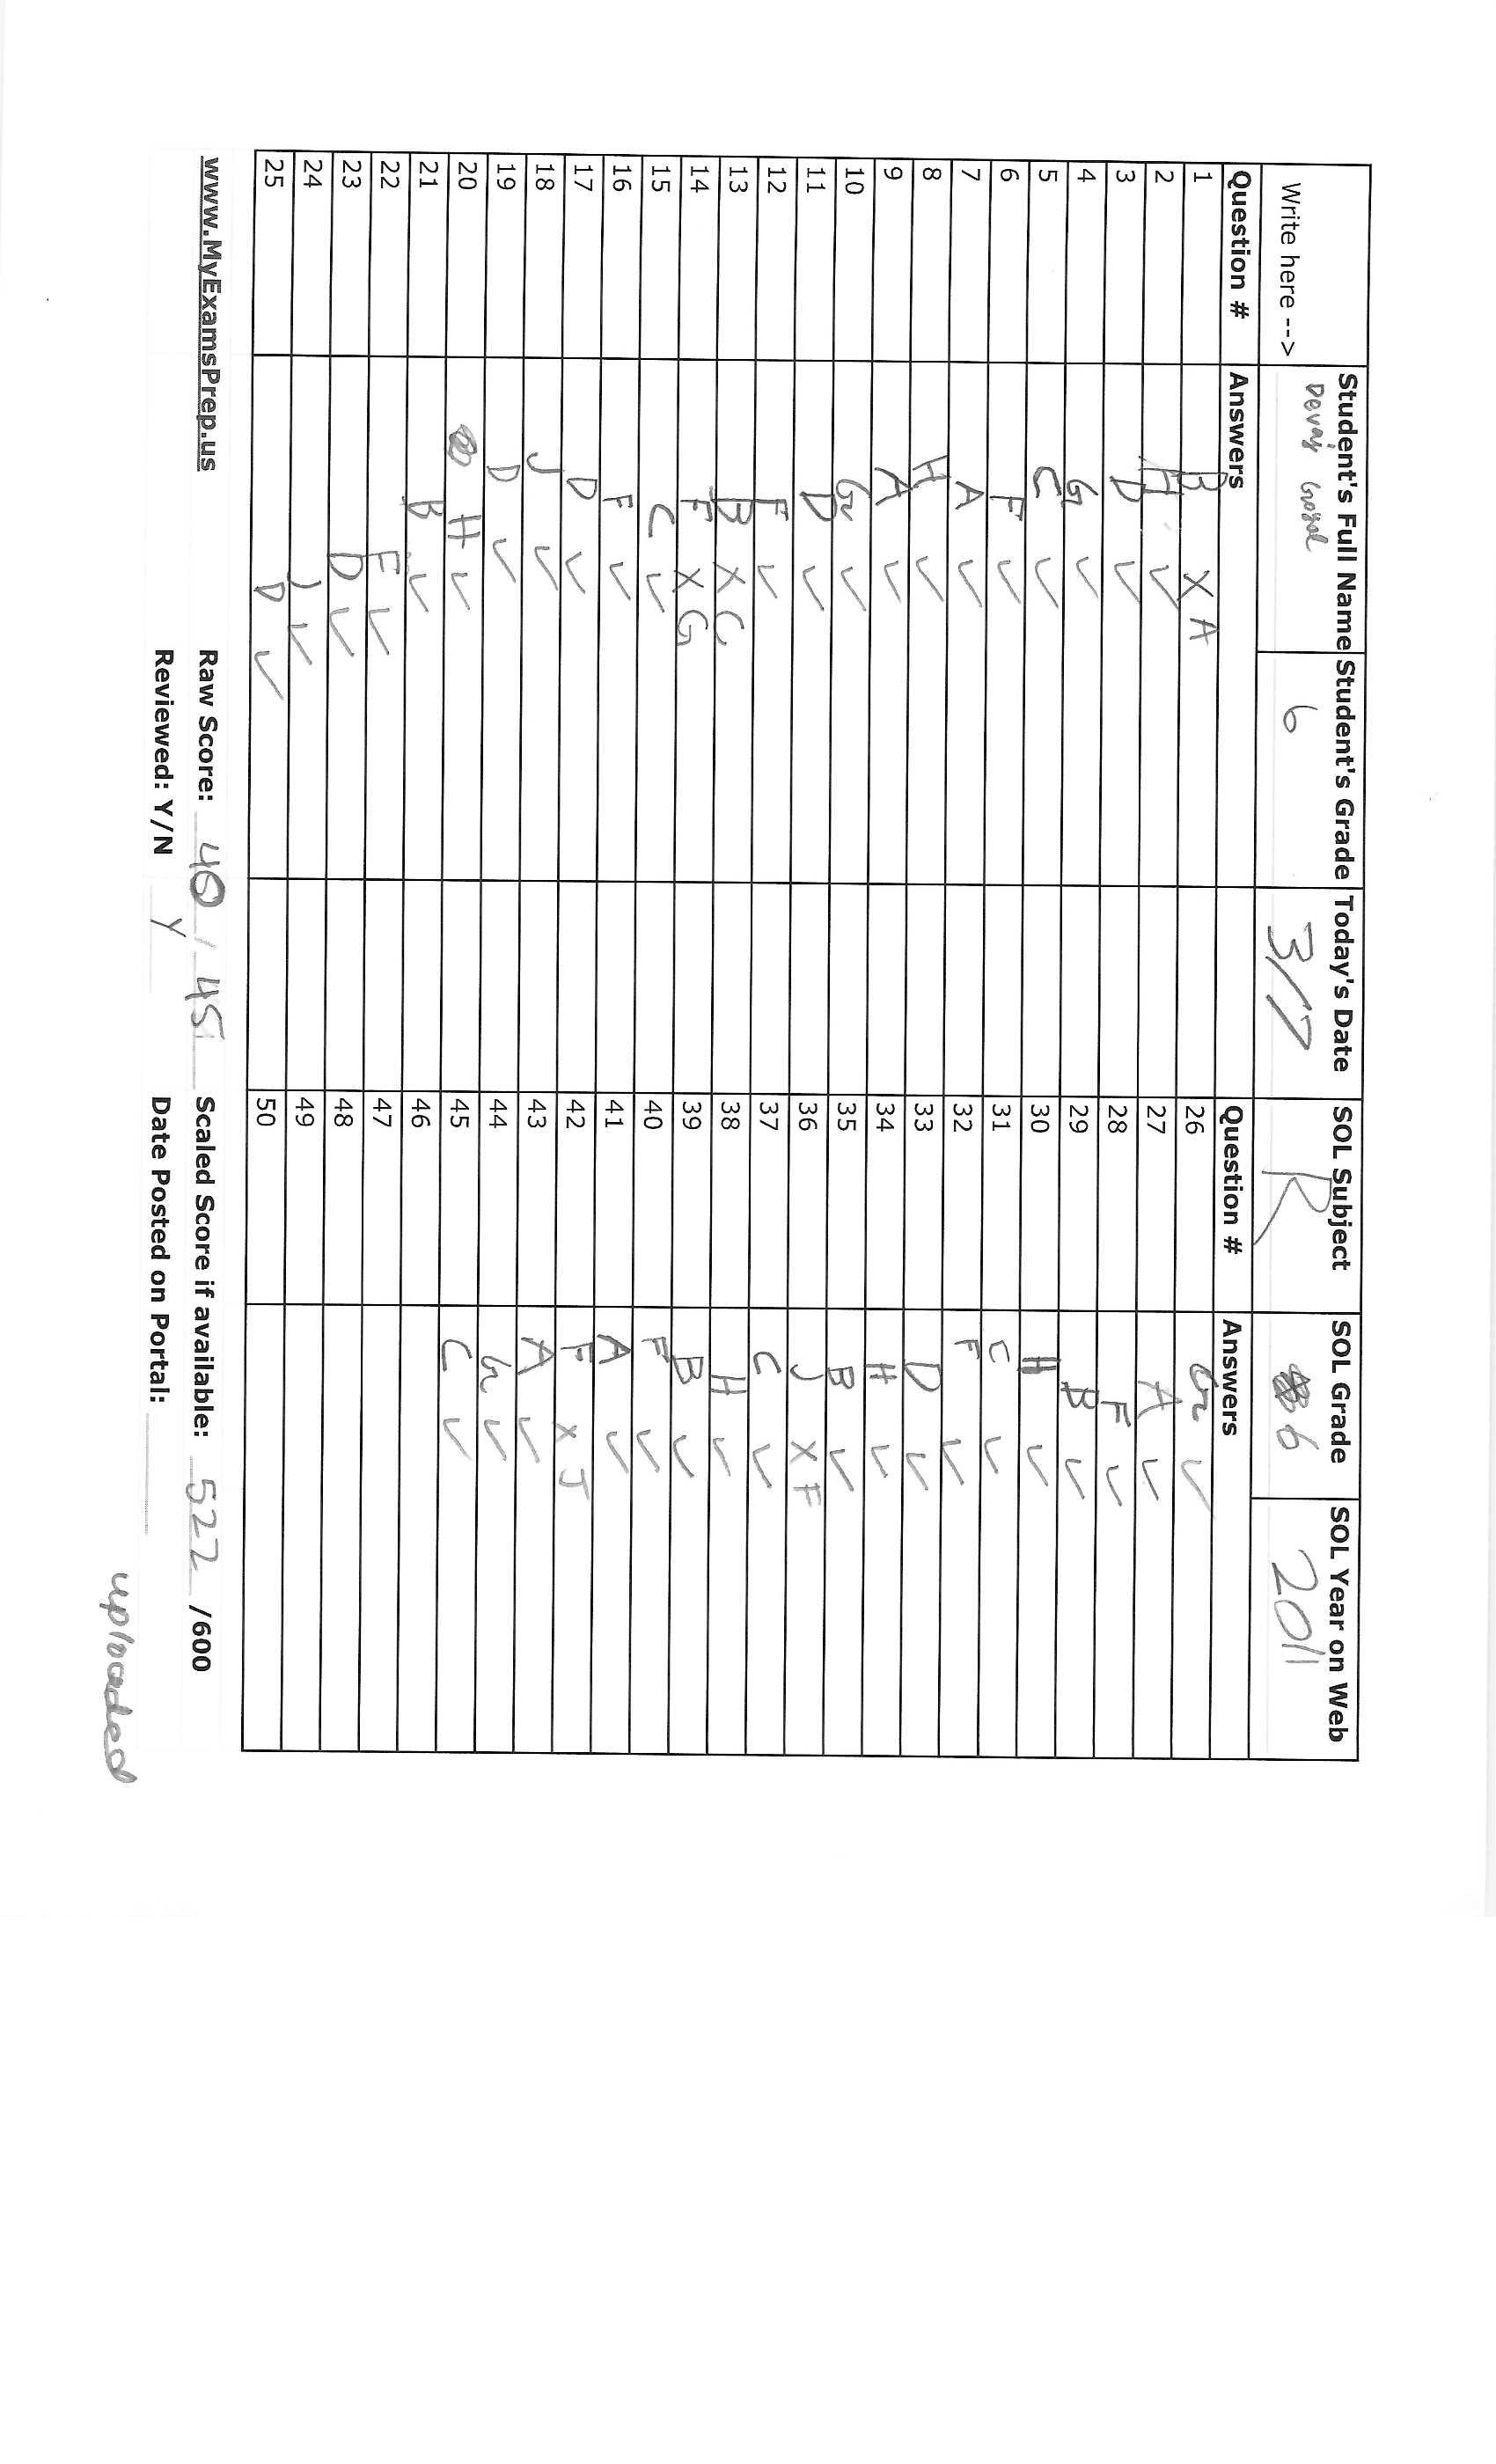 Student's Full Name Student's Grade Today's Date SOL Subject SOL Grade SOL Year on Web
Write here ---> Devaj Goyal 6 3/17 R 6 2011
Question # Answers Question # Answers
1 B X A 26 G ✓
2 H ✓ 27 A ✓
3 D ✓ 28 F ✓
4 G ✓ 29 B ✓
5 C ✓ 30 H ✓
6 F ✓ 31 C ✓
7 A ✓ 32 F ✓
8 H ✓ 33 D ✓
9 A ✓ 34 H ✓
10 G ✓ 35 B ✓
11 D ✓ 36 J X F
12 F ✓ 37 C ✓
13 B X C 38 H ✓
14 F X G 39 B ✓
15 C ✓ 40 F ✓
16 F ✓ 41 A ✓
17 D ✓ 42 F X J
18 J ✓ 43 A ✓
19 D ✓ 44 G ✓
20 H ✓ 45 C ✓
21 B ✓ 46
22 F ✓ 47
23 D ✓ 48
24 J ✓ 49
25 D ✓ 50
www.MyExamsPrep.us Raw Score: 40 / 45 Scaled Score if available: 522 /600
Reviewed: Y/N Y Date Posted on Portal:
uploaded